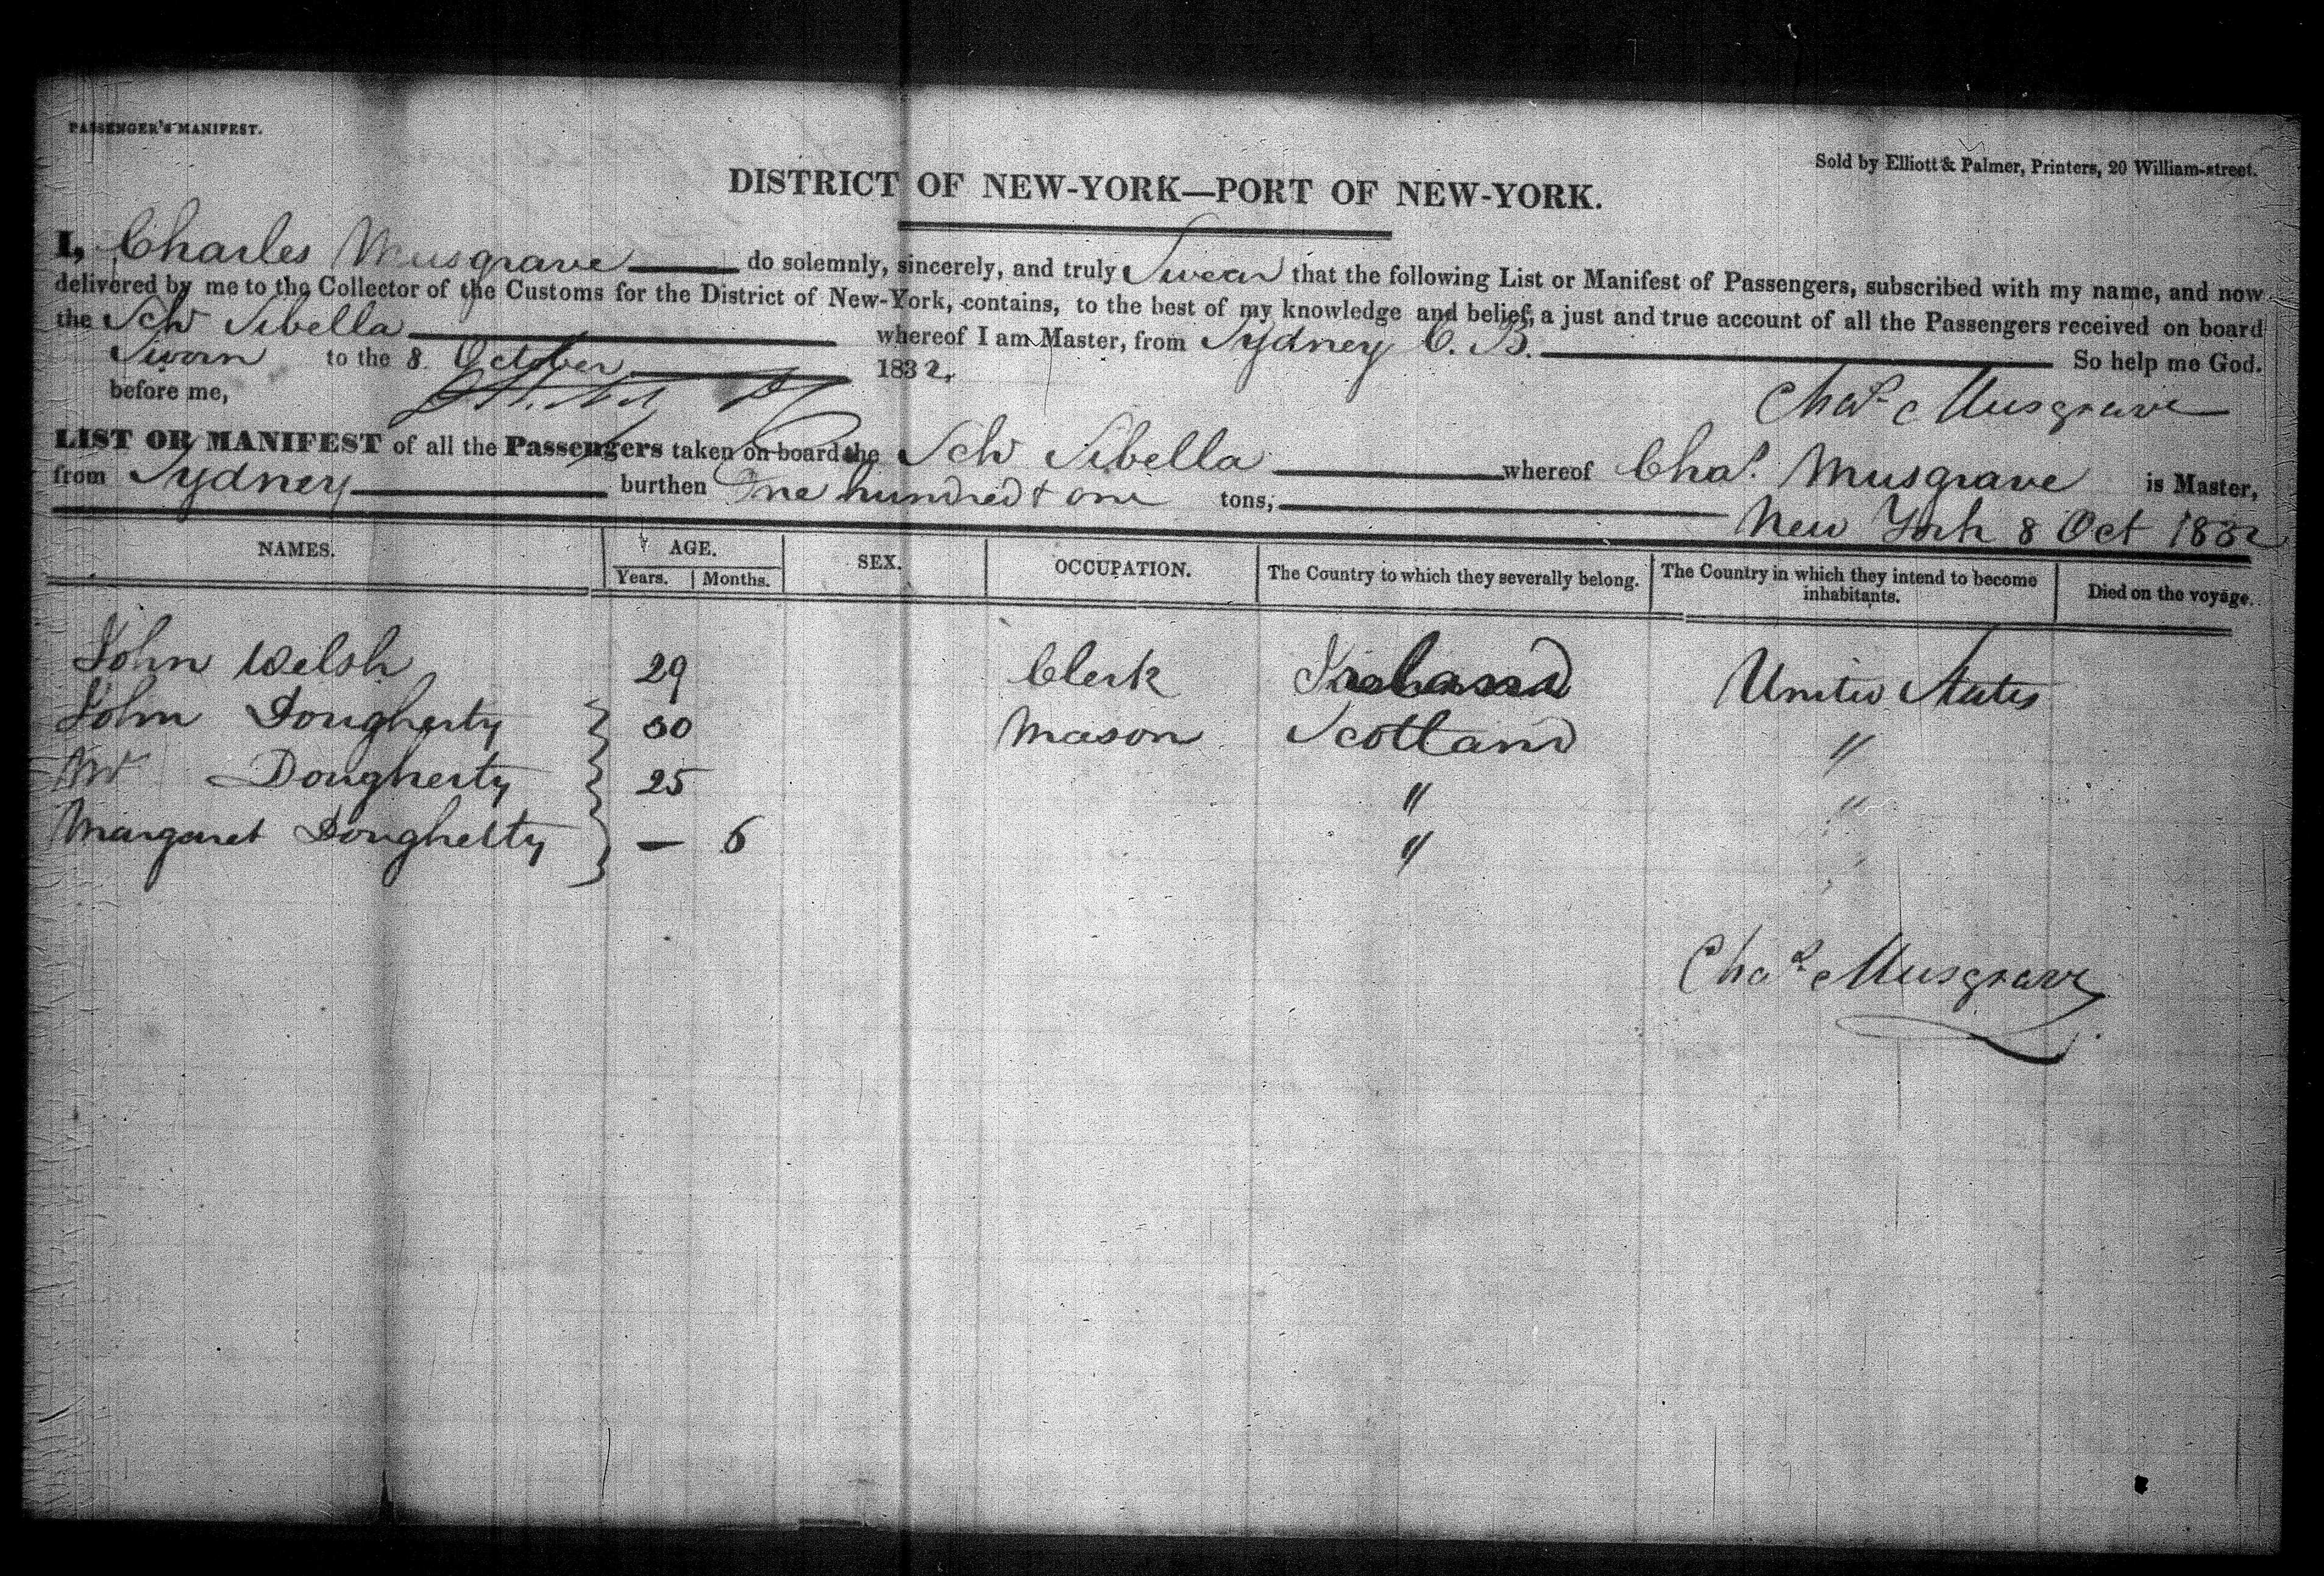 PASSENGER'S MANIFEST.
Sold by Elliott & Palmer, Printers, 20 William-street.
DISTRICT OF NEW-YORK—PORT OF NEW-YORK.
I, Charles Musgrave do solemnly, sincerely, and truly Swear that the following List or Manifest of Passengers, subscribed with my name, and now
delivered by me to the Collector of the Customs for the District of New-York, contains, to the best of my knowledge and belief, a just and true account of all the Passengers received on board
the Schr Sibella whereof I am Master, from Sydney C. B. So help me God.
Sworn to the 8 October 1832.
before me,
Chas Musgrave
LIST OR MANIFEST of all the Passengers taken on board the Schr Sibella whereof Chas. Musgrave is Master,
from Sydney burthen One hundred & one tons,
New York 8 Oct 1832
NAMES. AGE. SEX. OCCUPATION. The Country to which they severally belong. The Country in which they intend to become inhabitants. Died on the voyage.
Years. Months.
John Welsh 29 Clerk Ireland United States
John Dougherty 30 Mason Scotland "
Dougherty 25 " "
Margaret Dougherty — 6 " "
Chas Musgrave